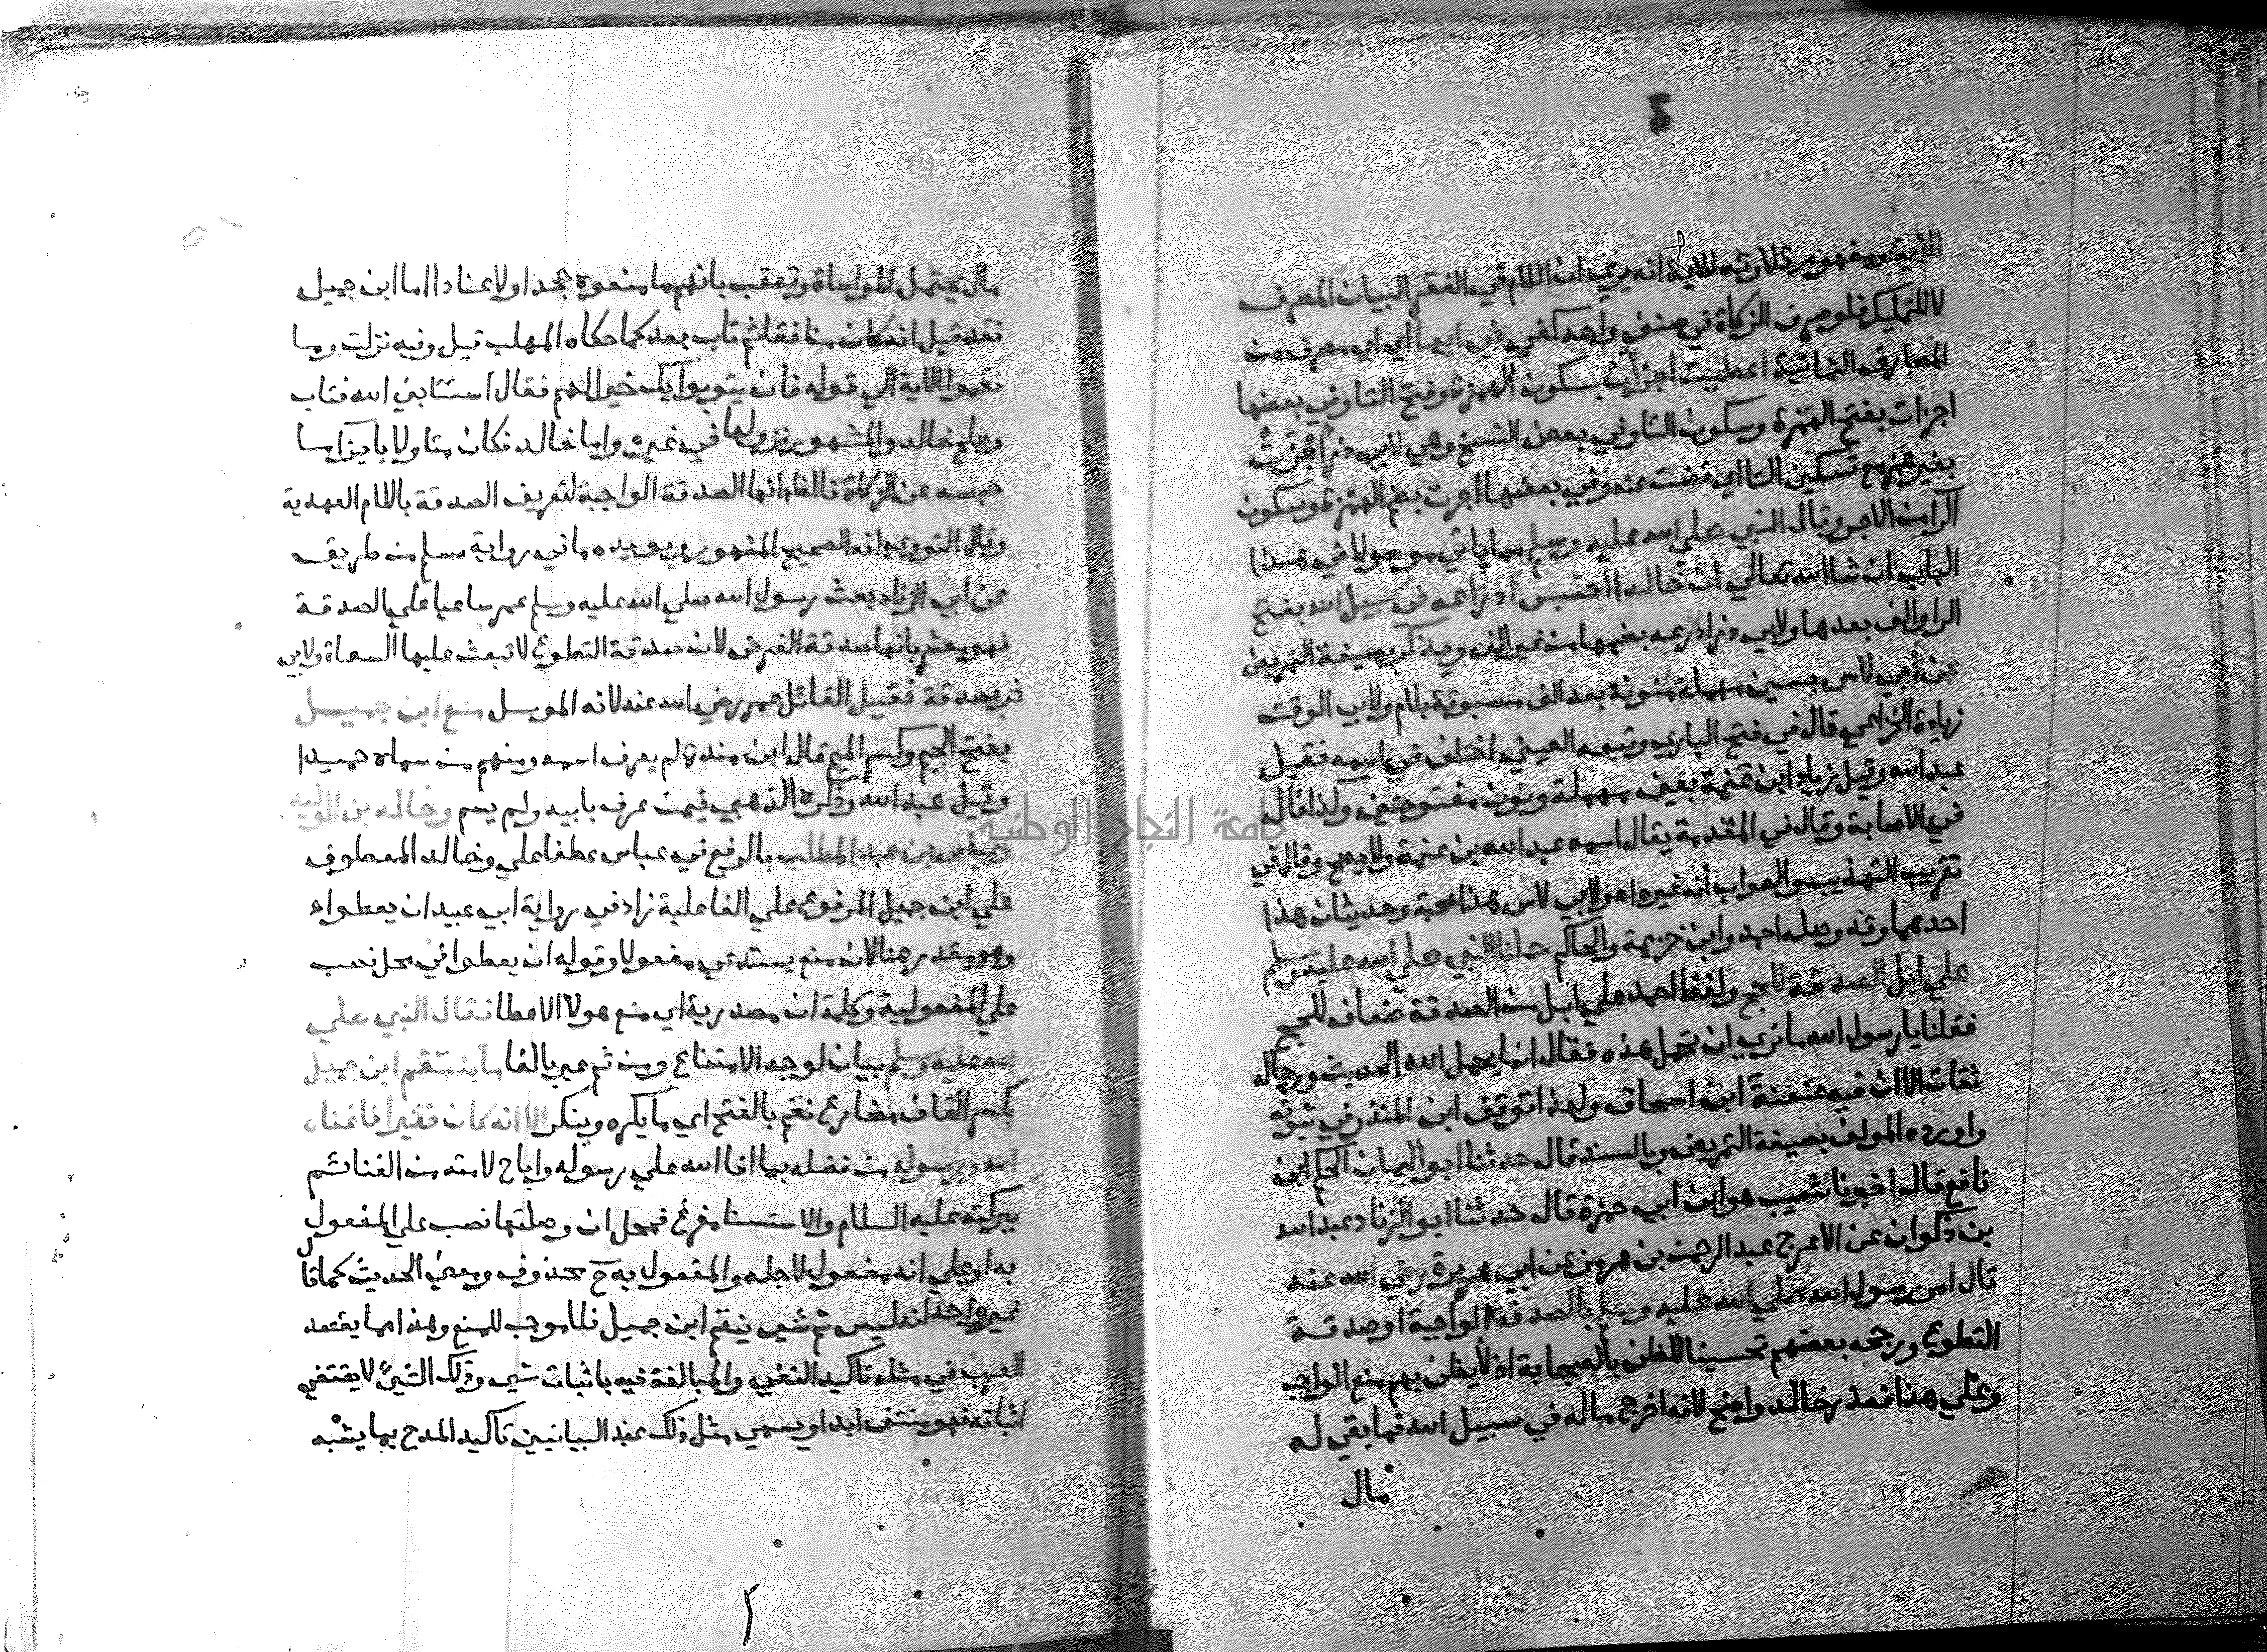 ٤
الاية ومفهوم تلاوته للاية انه يري ان اللام في الفقر البيان المصرف
لا للتمليك فلو صرف الزكاة في صنف واحد كفي في ايها اي اي مصرف من
المصارف الثمانية اعطيت اجزأت بسكون الهمزة وفتح التا وفي بعضها
اجزات بفتح الهمزة وسكون التا وفي بعض النسخ وهي لابي ذر أَجْزَتْ
بغير همز مع تسكين التا اي قضت عنه وفي بعضها اجرت بضم الهمزة وسكون
الرا من الاجر وقال النبي صلي الله عليه وسلم مما ياتي موصولا في هذا
الباب ان شا الله تعالي ان خالدا احتبس ادراعه في سبيل الله بفتح
الرا والف بعدها ولابي ذر ادرعه بضمها من غير الف ويذكر بصيغة التمريض
عن ابي لاس بسين مهملة منونة بعد الف مسبوقة بلام ولابي الوقت
زيادة الخزاعي قال في فتح الباري وتبعه العيني اختلف في اسمه فقيل
عبد الله وقيل زياد ابن عنمة بعين مهملة ونون مفتوحتين وكذا قال
في الاصابة وقال في المقدمة يقال اسمه عبد الله بن عنمة ولا يصح وقال في
تقريب التهذيب والصواب انه غيره اه ولابي لاس هذا صحبة وحديثان هذا
احدهما وقد وصله احمد وابن خزيمة والحاكم حملنا النبي صلي الله عليه وسلم
علي ابل الصدقة للحج ولفظ احمد علي ابل من الصدقة ضعاف للحج
فقلنا يا رسول الله ما نري ان تحمل هذه فقال انما يحمل الله الحديث ورجاله
ثقات الا ان فيه عنعنة ابن اسحاق ولهذا توقف ابن المنذر في ثبوته
واورده المولف بصيغة التمريض وبالسند قال حدثنا ابو اليمان الحكم ابن
نافع قال اخبرنا شعيب هو ابن ابي حمزة قال حدثنا ابو الزناد عبد الله
بن ذكوان عن الاعرج عبد الرحمن بن هرمز عن ابي هريرة رضي الله عنه
قال امر رسول الله صلي الله عليه وسلم بالصدقة الواجبة او صدقة
التطوع ورجحه بعضهم تحسينا للظن بالصحابة اذ لا يظن بهم منع الواجب
وعلي هذا فعذر خالد واضح لانه اخرج ماله في سبيل الله فما بقي له
مال
مال يحتمل المواساة وتعقب بانهم ما منعوه جحدا ولا عنادا اما ابن جميل
فقد قيل انه كان منافقا ثم تاب بعد كما حكاه المهلب قيل وفيه نزلت وما
نقموا الاية الي قوله فان يتوبوا يك خيرا لهم فقال استتابني الله فتاب
وصلح حاله والمشهور نزولها في غيره واما خالد فكان متاولا باجزا ما
حبسه عن الزكاة فالظاهر انها الصدقة الواجبة لتعريف الصدقة باللام العهدية
وقال النووي انه الصحيح المشهور ويويده ما في رواية مسلم من طريق
عن ابي الزناد بعث رسول الله صلي الله عليه وسلم عمر ساعيا علي الصدقة
فهو مشعر بانها صدقة الفرض لان صدقة التطوع لا تبعث عليها السعاة ولابي
ذر بصدقة فقيل القائل عمر رضي الله عنه لانه المرسل منع ابن جميل
بفتح الجيم وكسر الميم قال ابن مندة لم يعرف اسمه ومنهم من سماه حميدا
وقيل عبد الله وذكره الذهبي فيمن عرف بابيه ولم يسم وخالد بن الوليد
وعباس بن عبد المطلب بالرفع في عباس عطفا علي وخالد المعطوف
علي ابن جميل المرفوع علي الفاعلية زاد في رواية ابي عبيد ان يعطوا
وهو مقدر هنا لان منع يستدعي مفعولا وقوله ان يعطوا في محل نصب
علي المفعولية وكلمة ان مصدرية اي منع هولا الاعطا فقال النبي صلي
الله عليه وسلم بيان لوجه الامتناع ومن ثم عبر بالفا ما ينقم ابن جميل
بكسر القاف مضارع نقم بالفتح اي ما يكره وينكر الا انه كان فقيرا فاغناه
الله ورسوله من فضله بما افا الله علي رسوله واباح لامته من الغنائم
ببركته عليه السلام والاستثنا مفرغ فمحل ان وصلتها نصب علي المفعول
به او علي انه مفعول لاجله والمفعول به ح محذوف ومعني الحديث كما قال
غير واحد انه ليس ثم شي ينقم ابن جميل فلا موجب للمنع وهذا مما يقصد
العرب في مثله تاكيد النفي والمبالغة فيه باثبات شي وذلك الشي لا يقتضي
اثباته فهو منتف ابدا ويسمي مثل ذلك عند البيانيين تاكيد المدح بما يشبه
جامعة النجاح الوطنية